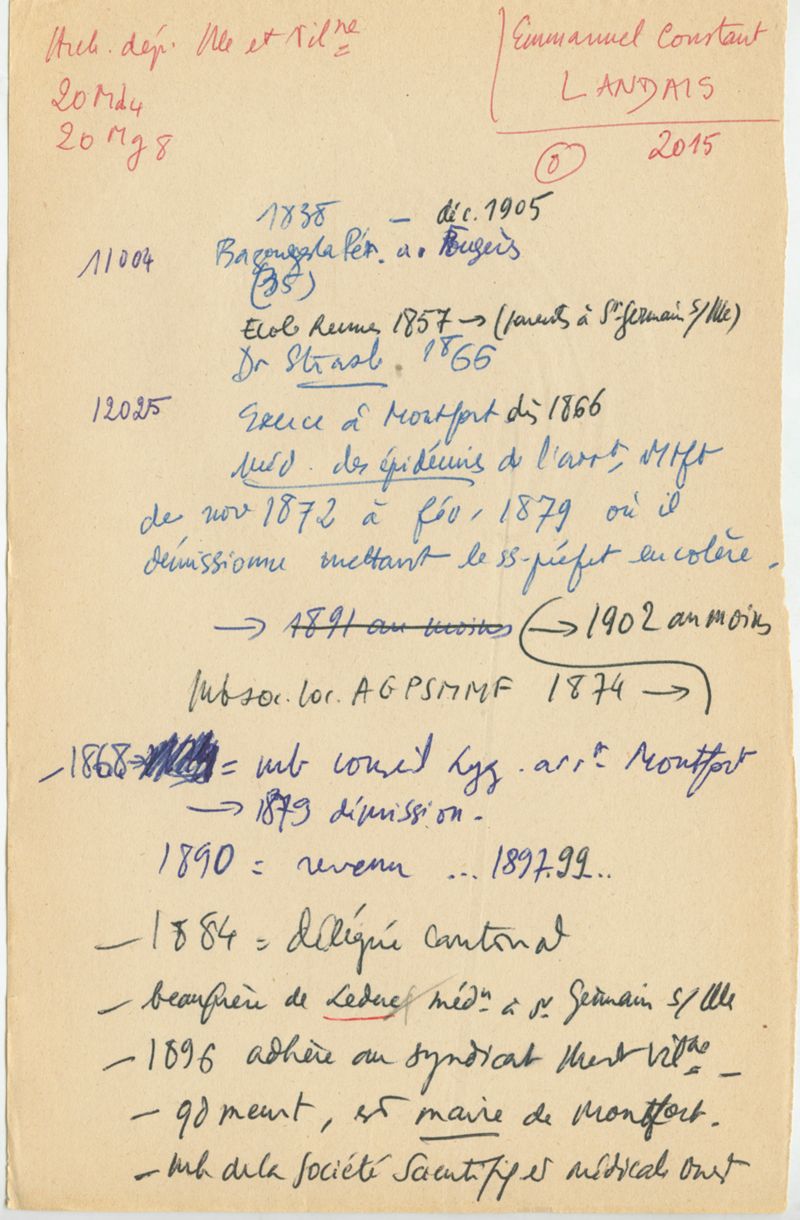 Arch. dép. Ille et Vilne
Emmanuel Constant
LANDAIS
20 Md4
20 Mg 8
8 2015
1838 – déc. 1905
11004 Bazouges la Pér. a. Fougères
(35)
Ecole Rennes 1857 → (parents à St Germain s/Ille)
Dr Strasb. 1866
12025 Exerce à Montfort dès 1866
Méd. des épidémies de l'arrt, Mtft
de nov 1872 à fév. 1879 où il
démissionne mettant le ss-préfet en colère.
→ 1891 au moins → 1902 au moins
Mb soc. loc. AGPSMMF 1874 →
– 1868 → = mb conseil hyg. arrt Montfort
→ 1879 démission.
1890 = revenu ... 1897.99..
– 1884 = délégué cantonal
– beaufrère de Leduc médn à St Germain s/Ille
– 1896 adhère au syndicat Ille et Vilne –
– qd meurt, est maire de Montfort.
– mb de la Société Scientifiq et médicale Ouest